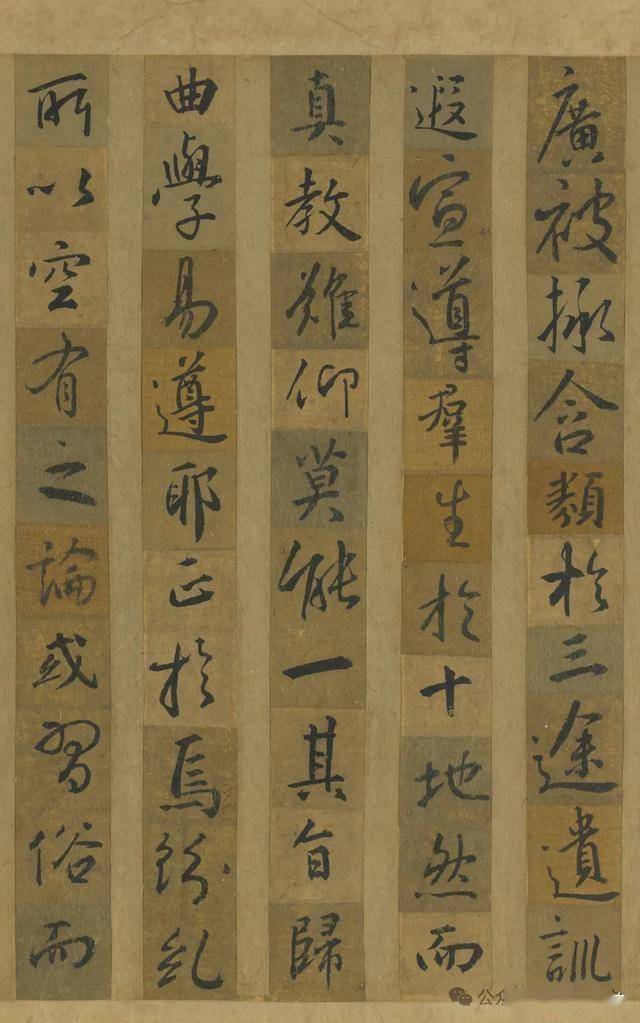 廣被拯含類於三途遺訓
遐宣導羣生於十地然而
真教難仰莫能一其旨歸
曲學易遵耶正於焉紛糺
所以空有之論或習俗而
公众